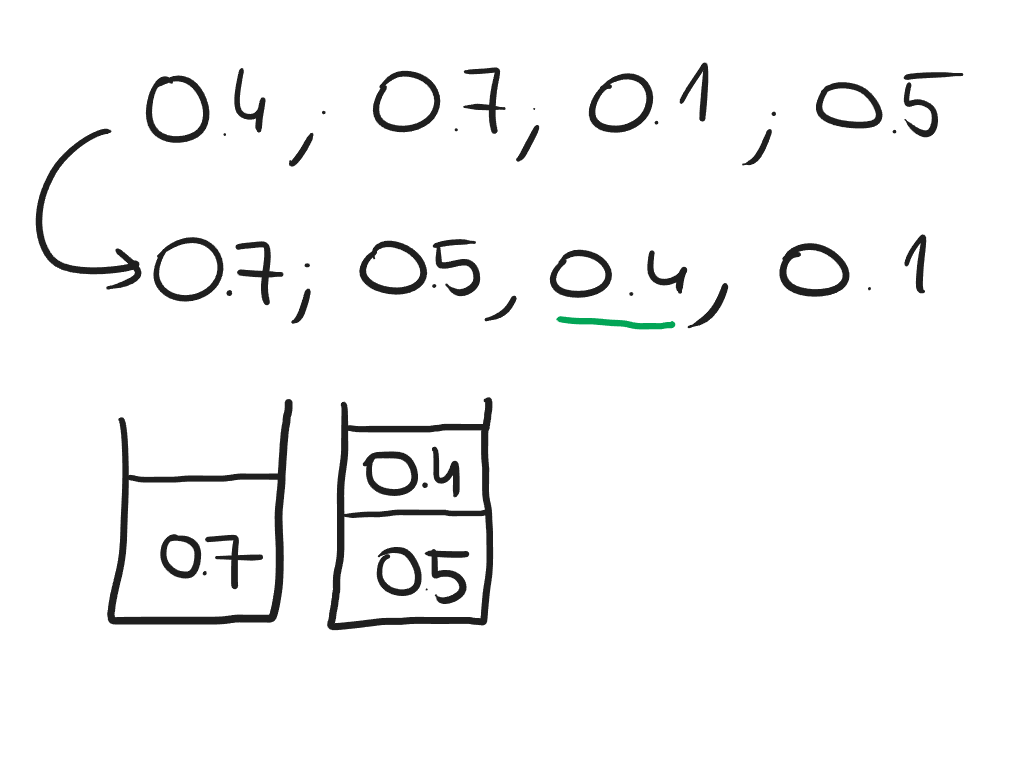 0.4; 0.7; 0.1; 0.5
0.7; 0.5, 0.4, 0.1
0.4
0.7 0.5